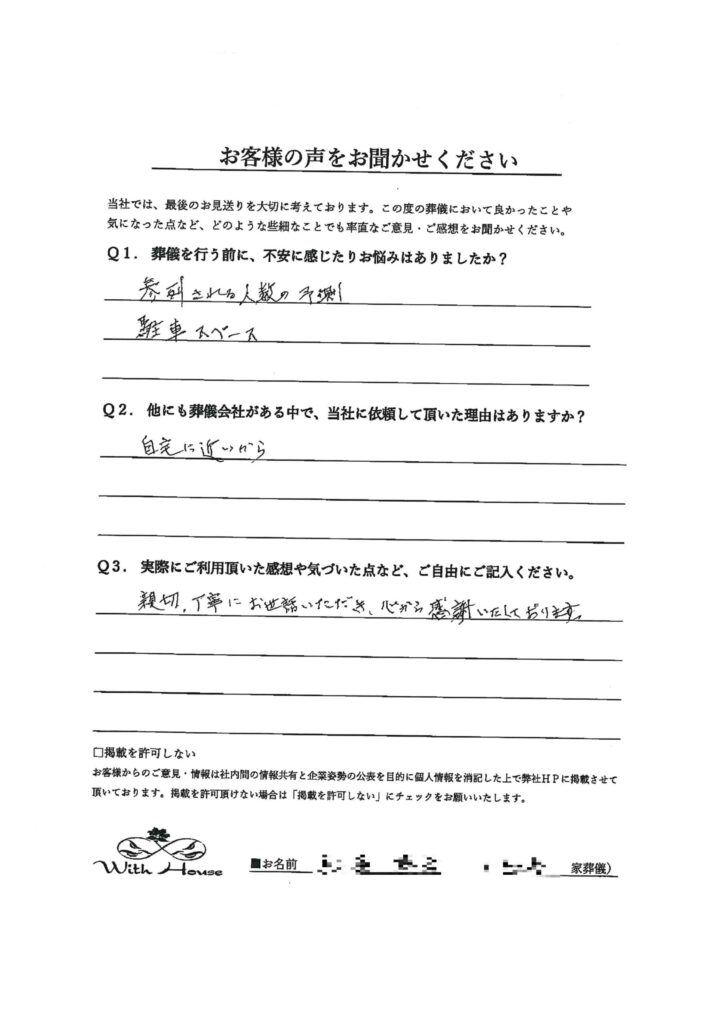 お客様の声をお聞かせください
当社では、最後のお見送りを大切に考えております。この度の葬儀において良かったことや
気になった点など、どのような些細なことでも率直なご意見・ご感想をお聞かせください。
Q1. 葬儀を行う前に、不安に感じたりお悩みはありましたか？
参列される人数の予測
駐車スペース
Q2. 他にも葬儀会社がある中で、当社に依頼して頂いた理由はありますか？
自宅に近いから
Q3. 実際にご利用頂いた感想や気づいた点など、ご自由にご記入ください。
親切、丁寧にお世話いただき、心から感謝いたしております。
□掲載を許可しない
お客様からのご意見・情報は社内間の情報共有と企業姿勢の公表を目的に個人情報を消記した上で弊社HPに掲載させて
頂いております。掲載を許可頂けない場合は「掲載を許可しない」にチェックをお願いいたします。
With House
■お名前 家葬儀）